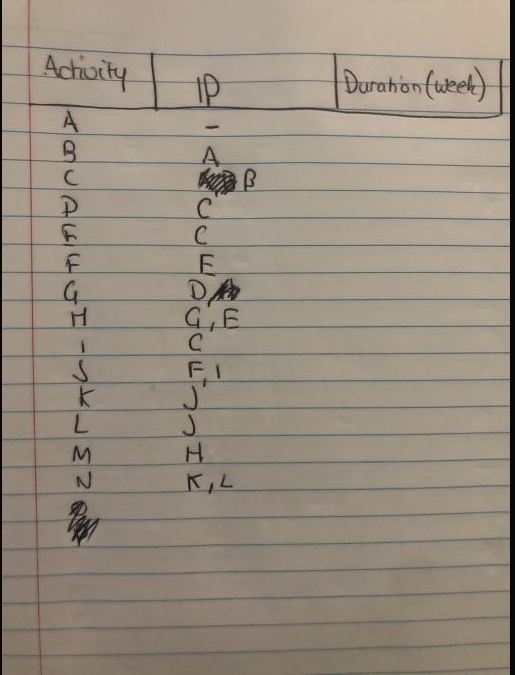 Activity IP Duration (week)
A -
B A
C B
D C
E C
F E
G D,
H G, E
I C
J F, I
K J
L J
M H
N K, L